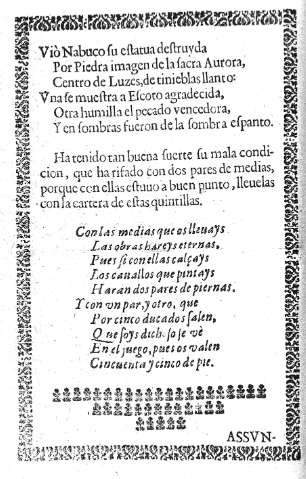 Viò Nabuco su estatua destruyda
Por Piedra imagen de la sacra Aurora,
Centro de Luzes, de tinieblas llanto:
Vna se muestra a Escoto agradecida,
Otra humilla el pecado vencedora,
Y en sombras fueron de la sombra espanto.
Ha tenido tan buena suerte su mala condi-
cion, que ha rifado con dos pares de medias,
porque con ellas estuuo a buen punto, lleuelas
con la cartera de estas quintillas.
Con las medias que os lleuays
Las obras hareys eternas,
Pues si con ellas calçays
Los cauallos que pintays
Haran dos pares de piernas.
Y con vn par, y otro, que
Por cinco ducados salen,
Que soys dichoso se vè
En el juego, pues os valen
Cincuenta y cinco de pie.
ASSVN-